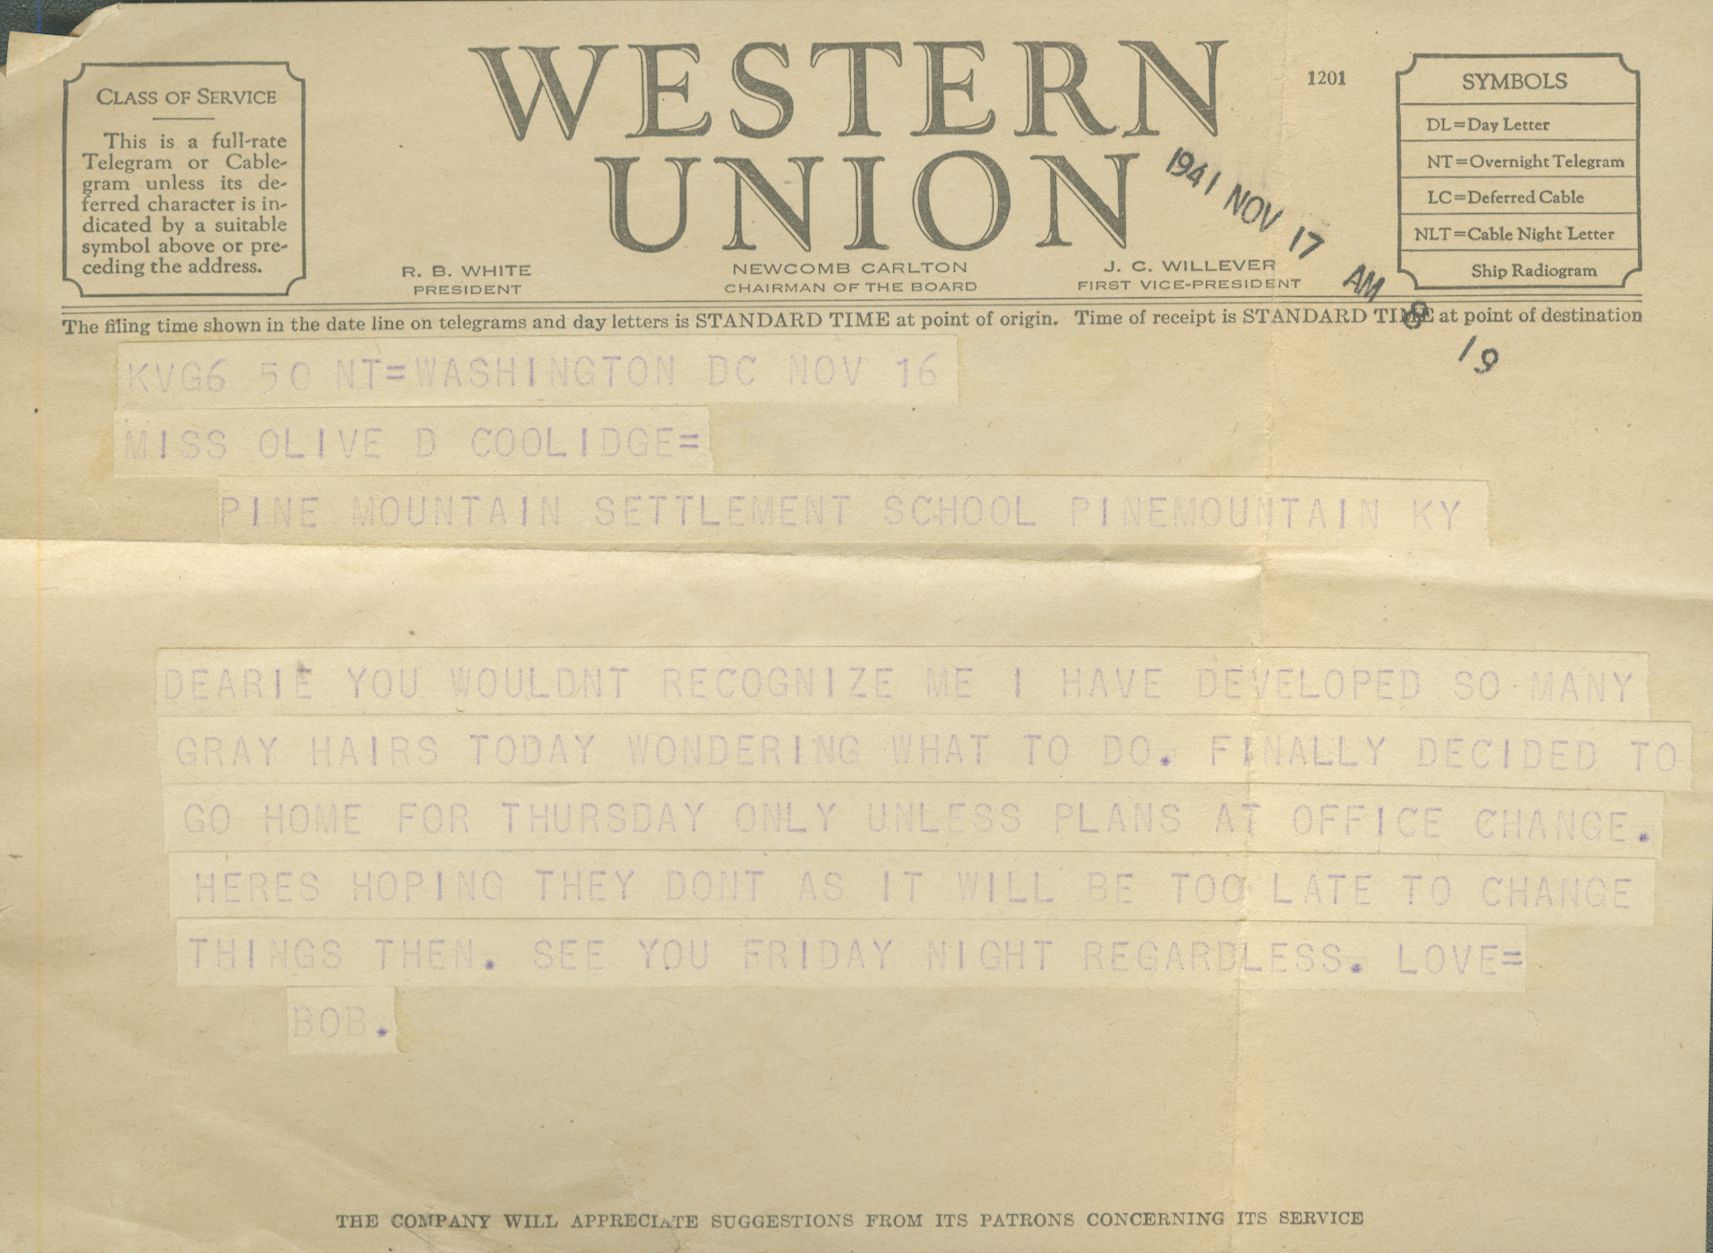 CLASS OF SERVICE
This is a full-rate
Telegram or Cable-
gram unless its de-
ferred character is in-
dicated by a suitable
symbol above or pre-
ceding the address.
WESTERN
UNION
1201
SYMBOLS
DL=Day Letter
NT=Overnight Telegram
LC=Deferred Cable
NLT=Cable Night Letter
Ship Radiogram
1941 NOV 17 AM 8 19
R. B. WHITE
PRESIDENT
NEWCOMB CARLTON
CHAIRMAN OF THE BOARD
J. C. WILLEVER
FIRST VICE-PRESIDENT
The filing time shown in the date line on telegrams and day letters is STANDARD TIME at point of origin. Time of receipt is STANDARD TIME at point of destination
KVG6 50 NT=WASHINGTON DC NOV 16
MISS OLIVE D COOLIDGE=
PINE MOUNTAIN SETTLEMENT SCHOOL PINEMOUNTAIN KY
DEARIE YOU WOULDNT RECOGNIZE ME I HAVE DEVELOPED SO MANY
GRAY HAIRS TODAY WONDERING WHAT TO DO. FINALLY DECIDED TO
GO HOME FOR THURSDAY ONLY UNLESS PLANS AT OFFICE CHANGE.
HERES HOPING THEY DONT AS IT WILL BE TOO LATE TO CHANGE
THINGS THEN. SEE YOU FRIDAY NIGHT REGARDLESS. LOVE=
BOB.
THE COMPANY WILL APPRECIATE SUGGESTIONS FROM ITS PATRONS CONCERNING ITS SERVICE